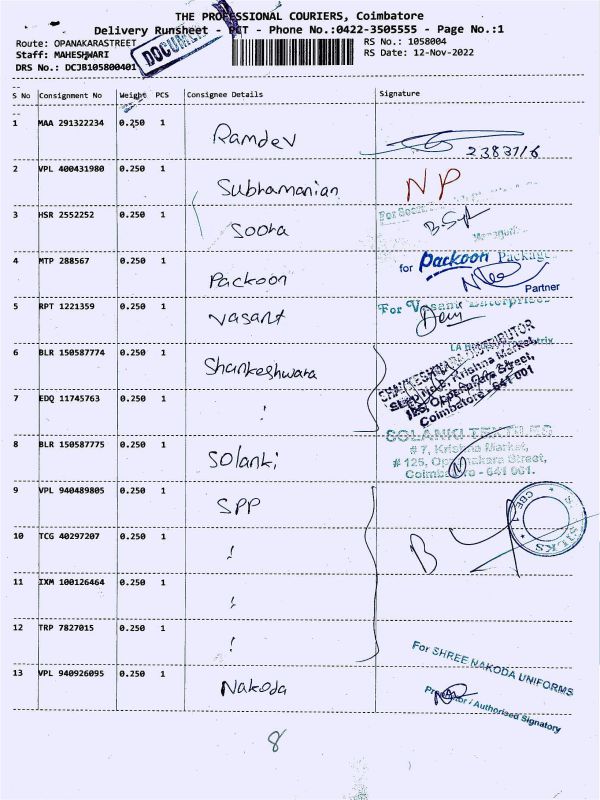 THE PROFESSIONAL COURIERS, Coimbatore
Delivery Runsheet - PCT - Phone No.:0422-3505555 - Page No.:1
Route: OPANAKARASTREET RS No.: 1058004
Staff: MAHESHWARI RS Date: 12-Nov-2022
DRS No.: DCJB105800401
DOCUMEN
S No Consignment No Weight PCS Consignee Details Signature
1 MAA 291322234 0.250 1 Ramdev
2383716
2 VPL 400431980 0.250 1 Subramanian NP
3 HSR 2552252 0.250 1 Soora
4 MTP 288567 0.250 1 Packoon for Packoon Package
Partner
5 RPT 1221359 0.250 1 Vasant For Vasant Enterprises
6 BLR 150587774 0.250 1 Shankeshwara SHANKESHWARA DISTRIBUTOR
Krishna Market,
126, Oppanakara Street,
Coimbatore - 641 001
7 EDQ 11745763 0.250 1 !
8 BLR 150587775 0.250 1 Solanki SOLANKI TEXTILES
# 7, Krishna Market,
# 126, Oppanakara Street,
Coimbatore - 641 001.
9 VPL 940489805 0.250 1 SPP
SILKS
CBE-1
10 TCG 40297207 0.250 1 !
B
11 IXM 100126464 0.250 1 !
12 TRP 7827015 0.250 1 !
13 VPL 940926095 0.250 1 Nakoda For SHREE NAKODA UNIFORMS
Proprietor / Authorised Signatory
8